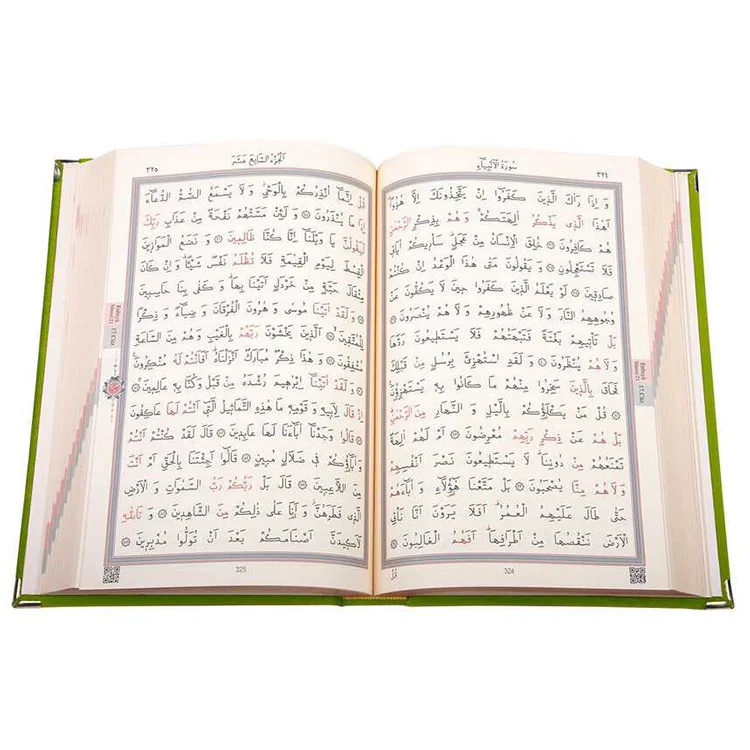 سُورَةُ الْاَنْبِيَاءِ ٣٢٤
وَ اِذَا رَاٰكَ الَّذينَ كَفَرُوا اِنْ يَتَّخِذُونَكَ اِلَّا هُزُوًا
اَهٰذَا الَّذي يَذْكُرُ اٰلِهَتَكُمْ وَ هُمْ بِذِكْرِ الرَّحْمٰنِ
هُمْ كَافِرُونَ ۞ خُلِقَ الْاِنْسَانُ مِنْ عَجَلٍ سَاُريكُمْ اٰيَاتي
فَلَا تَسْتَعْجِلُونِ ۞ وَ يَقُولُونَ مَتٰى هٰذَا الْوَعْدُ اِنْ كُنْتُمْ
صَادِقينَ ۞ لَوْ يَعْلَمُ الَّذينَ كَفَرُوا حينَ لَا يَكُفُّونَ عَنْ
وُجُوهِهِمُ النَّارَ وَ لَا عَنْ ظُهُورِهِمْ وَ لَا هُمْ يُنْصَرُونَ ۞
بَلْ تَاْتيهِمْ بَغْتَةً فَتَبْهَتُهُمْ فَلَا يَسْتَطيعُونَ رَدَّهَا
وَ لَا هُمْ يُنْظَرُونَ ۞ وَ لَقَدِ اسْتُهْزِئَ بِرُسُلٍ مِنْ قَبْلِكَ
فَحَاقَ بِالَّذينَ سَخِرُوا مِنْهُمْ مَا كَانُوا بِه يَسْتَهْزِؤُنَ ۞
قُلْ مَنْ يَكْلَؤُكُمْ بِالَّيْلِ وَ النَّهَارِ مِنَ الرَّحْمٰنِ
بَلْ هُمْ عَنْ ذِكْرِ رَبِّهِمْ مُعْرِضُونَ ۞ اَمْ لَهُمْ اٰلِهَةٌ
تَمْنَعُهُمْ مِنْ دُونِنَا لَا يَسْتَطيعُونَ نَصْرَ اَنْفُسِهِمْ
وَ لَا هُمْ مِنَّا يُصْحَبُونَ ۞ بَلْ مَتَّعْنَا هٰؤُلَاءِ وَ اٰبَاءَهُمْ
حَتّٰى طَالَ عَلَيْهِمُ الْعُمُرُ اَفَلَا يَرَوْنَ اَنَّا نَاْتِي
الْاَرْضَ نَنْقُصُهَا مِنْ اَطْرَافِهَا اَفَهُمُ الْغَالِبُونَ ۞
قُلْ
324
Enbiyâ Suresi 21
17. Cüz
اَلْجُزْءُ السَّابِعَ عَشَرَ ٣٢٥
قُلْ اِنَّمَا اُنْذِرُكُمْ بِالْوَحْيِ وَ لَا يَسْمَعُ الصُّمُّ الدُّعَاءَ
اِذَا مَا يُنْذَرُونَ ۞ وَ لَئِنْ مَسَّتْهُمْ نَفْحَةٌ مِنْ عَذَابِ رَبِّكَ
لَيَقُولُنَّ يَا وَيْلَنَا اِنَّا كُنَّا ظَالِمينَ ۞ وَ نَضَعُ الْمَوَازينَ
الْقِسْطَ لِيَوْمِ الْقِيٰمَةِ فَلَا تُظْلَمُ نَفْسٌ شَيْئًا وَ اِنْ كَانَ
مِثْقَالَ حَبَّةٍ مِنْ خَرْدَلٍ اَتَيْنَا بِهَا وَ كَفٰى بِنَا حَاسِبينَ
۞ وَ لَقَدْ اٰتَيْنَا مُوسٰى وَ هٰرُونَ الْفُرْقَانَ وَ ضِيَاءً وَ ذِكْرًا
لِلْمُتَّقينَ ۞ اَلَّذينَ يَخْشَوْنَ رَبَّهُمْ بِالْغَيْبِ وَ هُمْ مِنَ السَّاعَةِ
مُشْفِقُونَ ۞ وَ هٰذَا ذِكْرٌ مُبَارَكٌ اَنْزَلْنَاهُ اَفَاَنْتُمْ لَهُ مُنْكِرُونَ ۞
وَ لَقَدْ اٰتَيْنَا اِبْرٰهيمَ رُشْدَهُ مِنْ قَبْلُ وَ كُنَّا بِه عَالِمينَ ۞
اِذْ قَالَ لِاَبيهِ وَ قَوْمِه مَا هٰذِهِ التَّمَاثيلُ الَّتي اَنْتُمْ لَهَا عَاكِفُونَ
۞ قَالُوا وَجَدْنَا اٰبَاءَنَا لَهَا عَابِدينَ ۞ قَالَ لَقَدْ كُنْتُمْ اَنْتُمْ
وَ اٰبَاؤُكُمْ في ضَلَالٍ مُبينٍ ۞ قَالُوا اَجِئْتَنَا بِالْحَقِّ اَمْ اَنْتَ
مِنَ اللَّاعِبينَ ۞ قَالَ بَلْ رَبُّكُمْ رَبُّ السَّمٰوَاتِ وَ الْاَرْضِ
الَّذي فَطَرَهُنَّ وَ اَنَا عَلٰى ذٰلِكُمْ مِنَ الشَّاهِدينَ ۞ وَ تَاللّٰهِ
لَاَكيدَنَّ اَصْنَامَكُمْ بَعْدَ اَنْ تُوَلُّوا مُدْبِرينَ ۞
325
Enbiyâ Suresi 21
17. Cüz